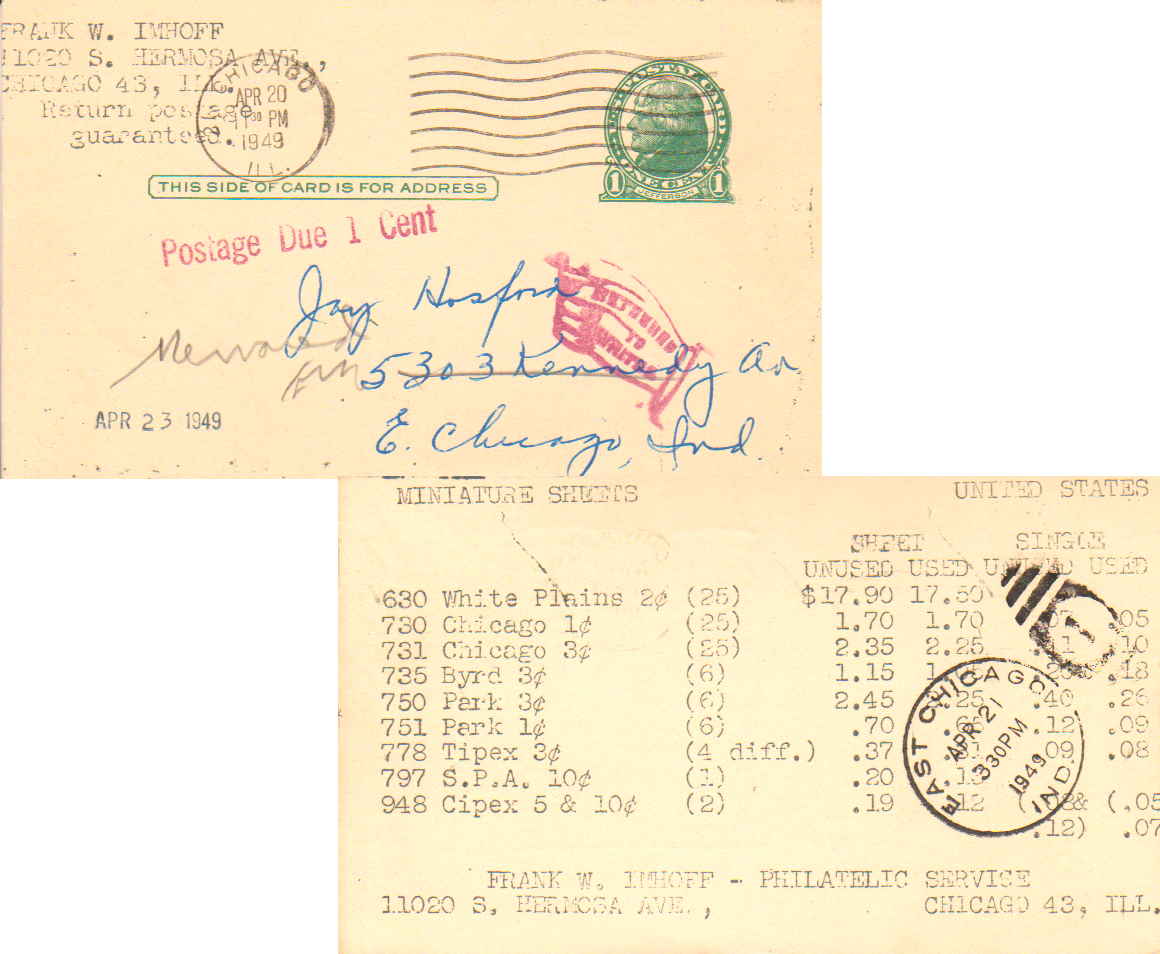 FRANK W. IMHOFF
11020 S. HERMOSA AVE.,
CHICAGO 43, ILL.
Return postage
guaranteed.
CHICAGO
APR 20
11 30 PM
1949
ILL.
U.S. POSTAL CARD
1 ONE CENT 1
JEFFERSON
THIS SIDE OF CARD IS FOR ADDRESS
Postage Due 1 Cent
Jay Hosford
RETURNED
TO
WRITER
5303 Kennedy Av.
E. Chicago, Ind.
APR 23 1949
MINIATURE SHEETS UNITED STATES
SHEET SINGLE
UNUSED USED UNUSED USED
630 White Plains 2¢ (25) $17.90 17.50 .05
730 Chicago 1¢ (25) 1.70 1.70 .07 .05
731 Chicago 3¢ (25) 2.35 2.25 .11 .10
735 Byrd 3¢ (6) 1.15 .18
750 Park 3¢ (6) 2.45 .40 .26
751 Park 1¢ (6) .70 .12 .09
778 Tipex 3¢ (4 diff.) .37 .09 .08
797 S.P.A. 10¢ (1) .20
948 Cipex 5 & 10¢ (2) .19 .12 (.08& (.05
.12) .07
1
EAST CHICAGO
APR 21
330PM
1949
IND.
FRANK W. IMHOFF - PHILATELIC SERVICE
11020 S. HERMOSA AVE., CHICAGO 43, ILL.